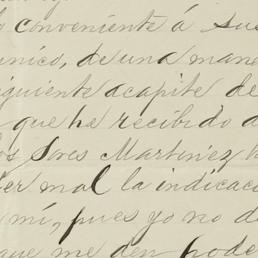 conveniente á sus
unico, de una mane
siguiente acapite de
que ha recibido d
los Sores Martinez
ber mal la indicac
mi, pues yo no d
que me den poder